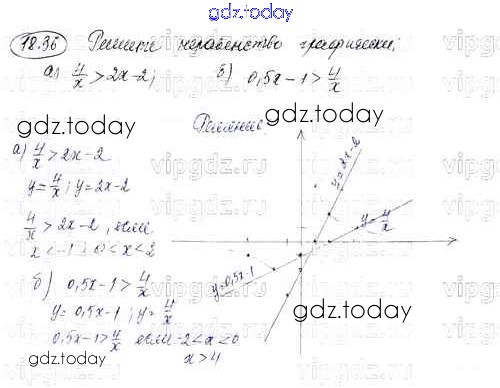 gdz.today
18.36 Решите неравенство графически:
а) 4/x > 2x-2; б) 0,5x-1 > 4/x
gdz.today
Решение
а) 4/x > 2x-2
y = 4/x ; y = 2x-2
gdz.today
4/x > 2x-2, если
x < -1 ; 0 < x < 2
б) 0,5x-1 > 4/x
y = 0,5x-1 ; y = 4/x
0,5x-1 > 4/x если -2 < x < 0
x > 4
gdz.today
y = 2x-2
y = 4/x
y = 0,5x-1
gdz.today
gdz.today
vipgdz.ru